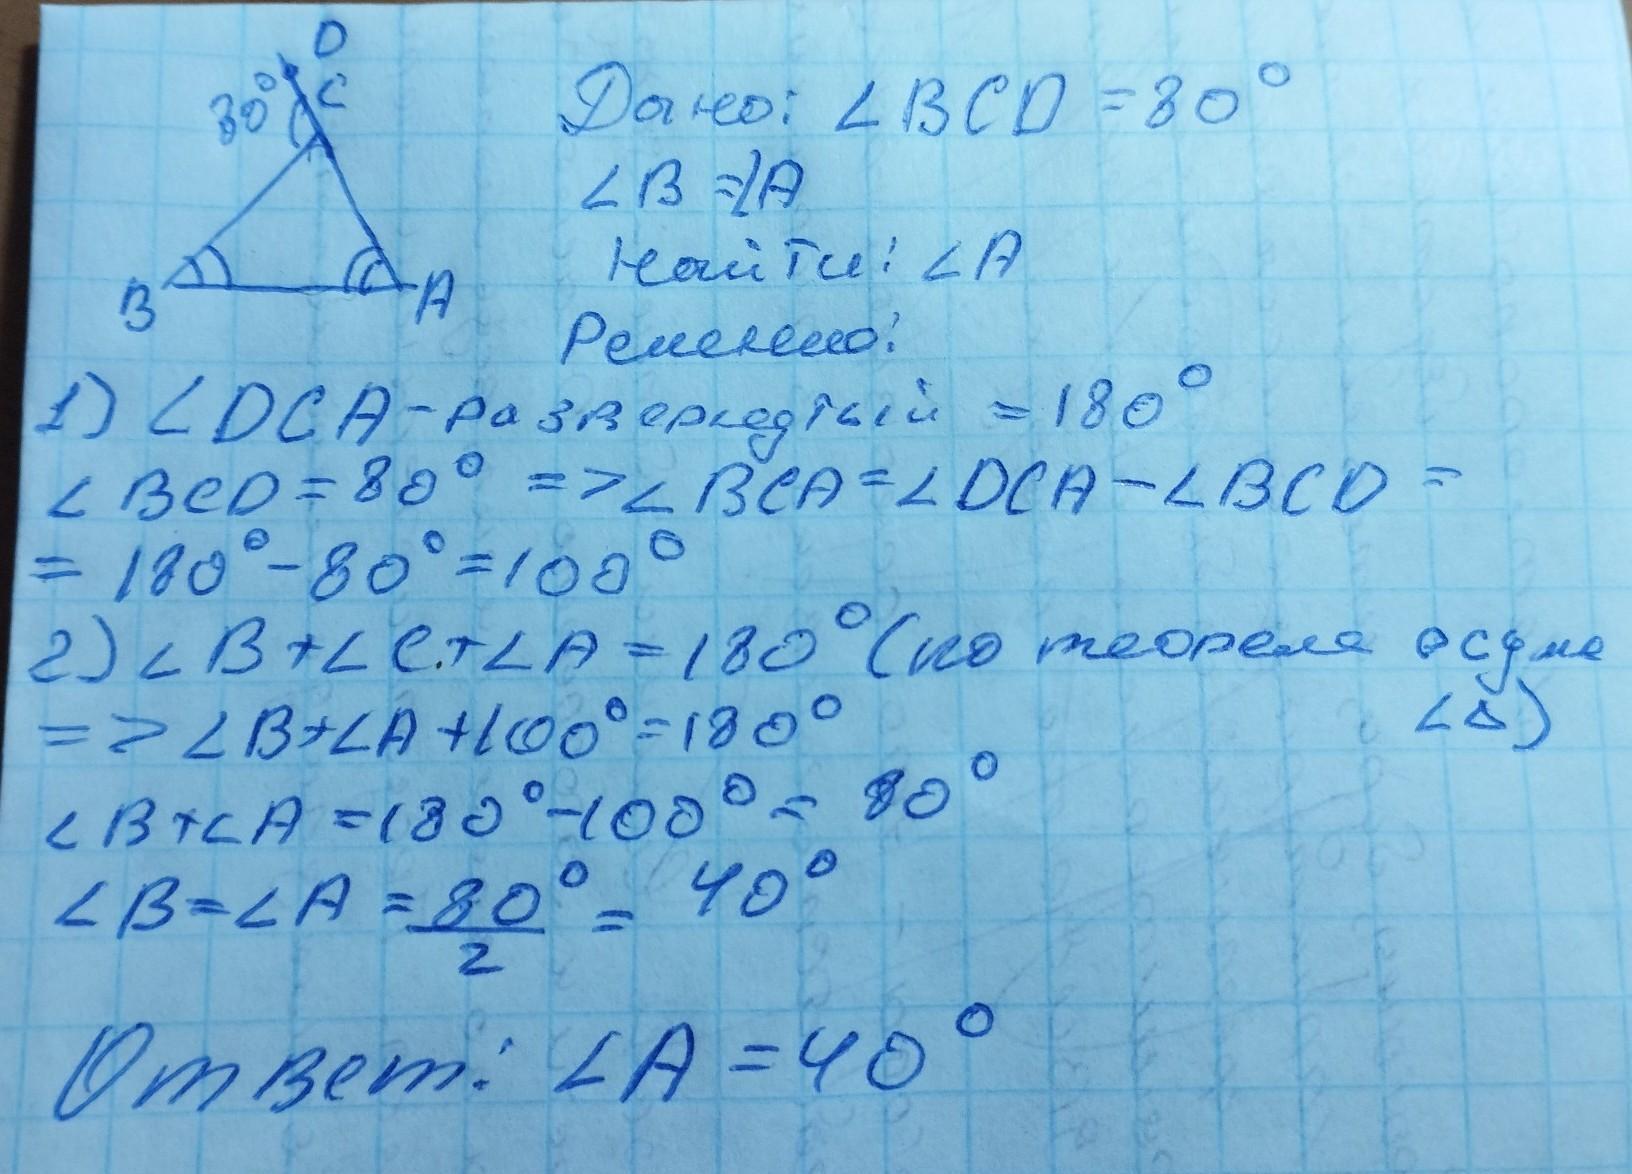 D
80° C
B A
Дано: ∠BCD = 80°
∠B = ∠A
Найти: ∠A
Решение:
1) ∠DCA - развернутый = 180°
∠BCD = 80° => ∠BCA = ∠DCA - ∠BCD =
= 180° - 80° = 100°
2) ∠B + ∠C + ∠A = 180° (по теореме о сумме
∠Δ)
=> ∠B + ∠A + 100° = 180°
∠B + ∠A = 180° - 100° = 80°
∠B = ∠A = 80°/2 = 40°
Ответ: ∠A = 40°